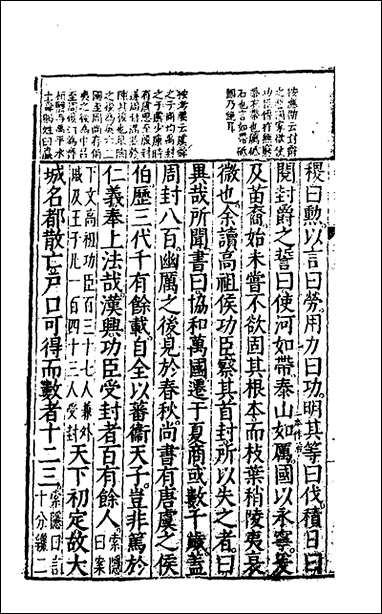 按應劭云封爵
之誓國家欲使
功臣傳祚無窮
帶衣帶也厲砥
石也言如帶砥
國乃絕耳
稷曰勳以言曰勞用力曰功明其等曰伐積日曰
閱封爵之誓曰使河如帶泰山如厲國以永寧爰
及苗裔始未嘗不欲固其根本而枝葉稍陵夷衰
微也余讀高祖侯功臣察其首封所以失之者曰
異哉所聞書曰協和萬國遷于夏商或數千歲蓋
周封八百幽厲之後見於春秋尚書有唐虞之侯
伯歷三代千有餘載自全以蕃衞天子豈非篤於
仁義奉上法哉漢興功臣受封者百有餘人索隱曰案
下文高祖功臣百三十七人兼外戚及王子凡一百四十三人受封天下初定故大
城名都散亡戶口可得而數者十二三索隱曰言十分纔二